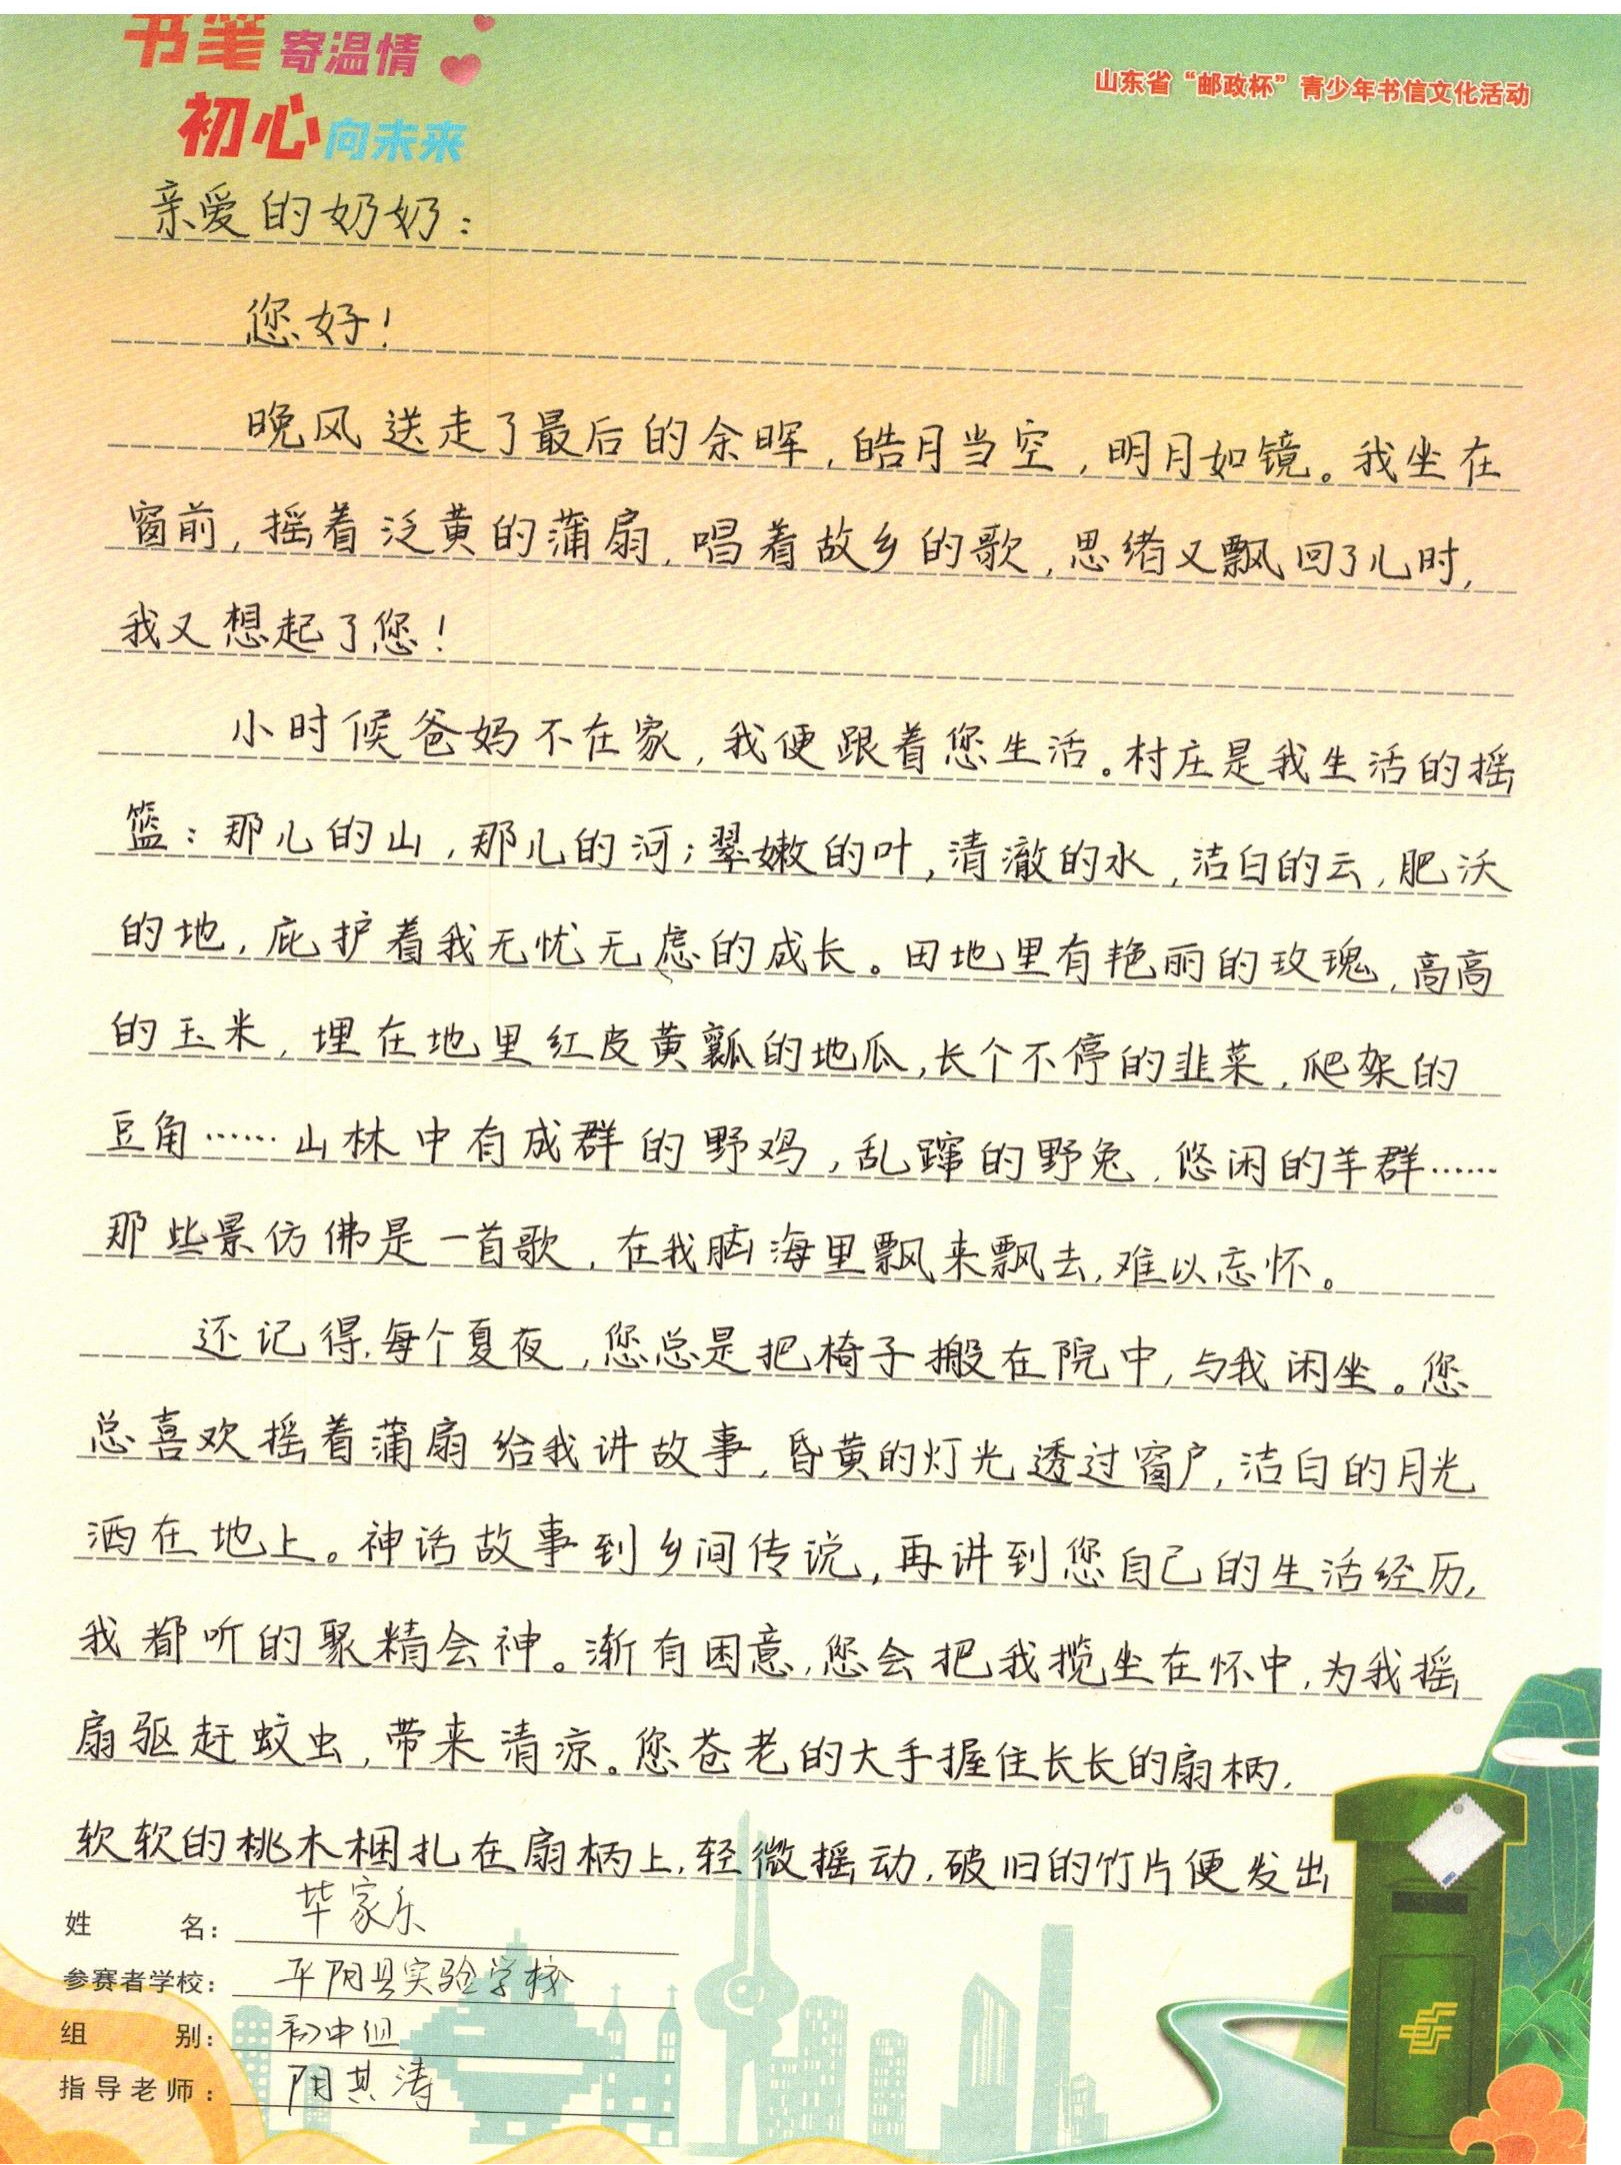 书笔寄温情
初心向未来
山东省“邮政杯”青少年书信文化活动
亲爱的奶奶：
您好！
晚风送走了最后的余晖，皓月当空，明月如镜。我坐在
窗前，摇着泛黄的蒲扇，唱着故乡的歌，思绪又飘回了儿时，
我又想起了您！
小时候爸妈不在家，我便跟着您生活。村庄是我生活的摇
篮：那儿的山，那儿的河；翠嫩的叶，清澈的水，洁白的云，肥沃
的地，庇护着我无忧无虑的成长。田地里有艳丽的玫瑰，高高
的玉米，埋在地里红皮黄瓤的地瓜，长个不停的韭菜，爬架的
豆角……山林中有成群的野鸡，乱蹿的野兔，悠闲的羊群……
那些景仿佛是一首歌，在我脑海里飘来飘去，难以忘怀。
还记得，每个夏夜，您总是把椅子搬在院中，与我闲坐。您
总喜欢摇着蒲扇给我讲故事，昏黄的灯光透过窗户，洁白的月光
洒在地上。神话故事到乡间传说，再讲到您自己的生活经历，
我都听的聚精会神。渐有困意，您会把我揽坐在怀中，为我摇
扇驱赶蚊虫，带来清凉。您苍老的大手握住长长的扇柄，
软软的桃木捆扎在扇柄上，轻微摇动，破旧的竹片便发出
姓名：毕家乐
参赛者学校：平阴县实验学校
组别：初中组
指导老师：阴其涛